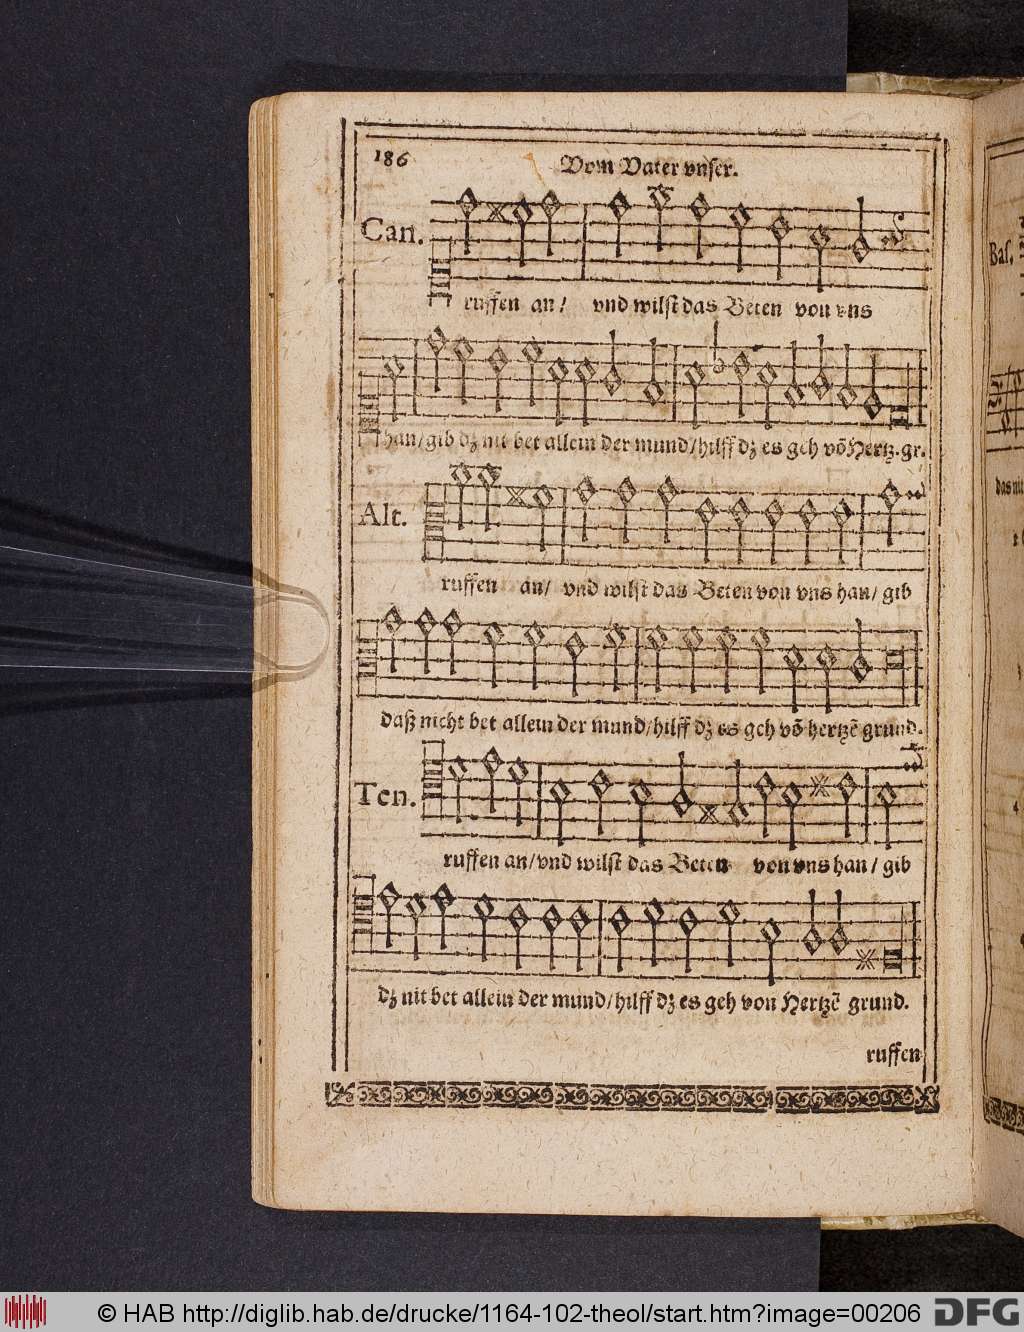 186
Vom Vater vnser.
Can.
ruffen an / vnd wilſt das Beten von vns
han / gib dz nit bet allein der mund / hilff dz es geh võ Hertz. gr.
Alt.
ruffen an / vnd wilſt das Beten von vns han / gib
daß nicht bet allein der mund / hilff dz es geh võ hertzẽ grund.
Ten.
ruffen an / vnd wilſt das Beten von vns han / gib
dz nit bet allein der mund / hilff dz es geh von Hertzẽ grund.
ruffen
Baſ.
© HAB http://diglib.hab.de/drucke/1164-102-theol/start.htm?image=00206
DFG